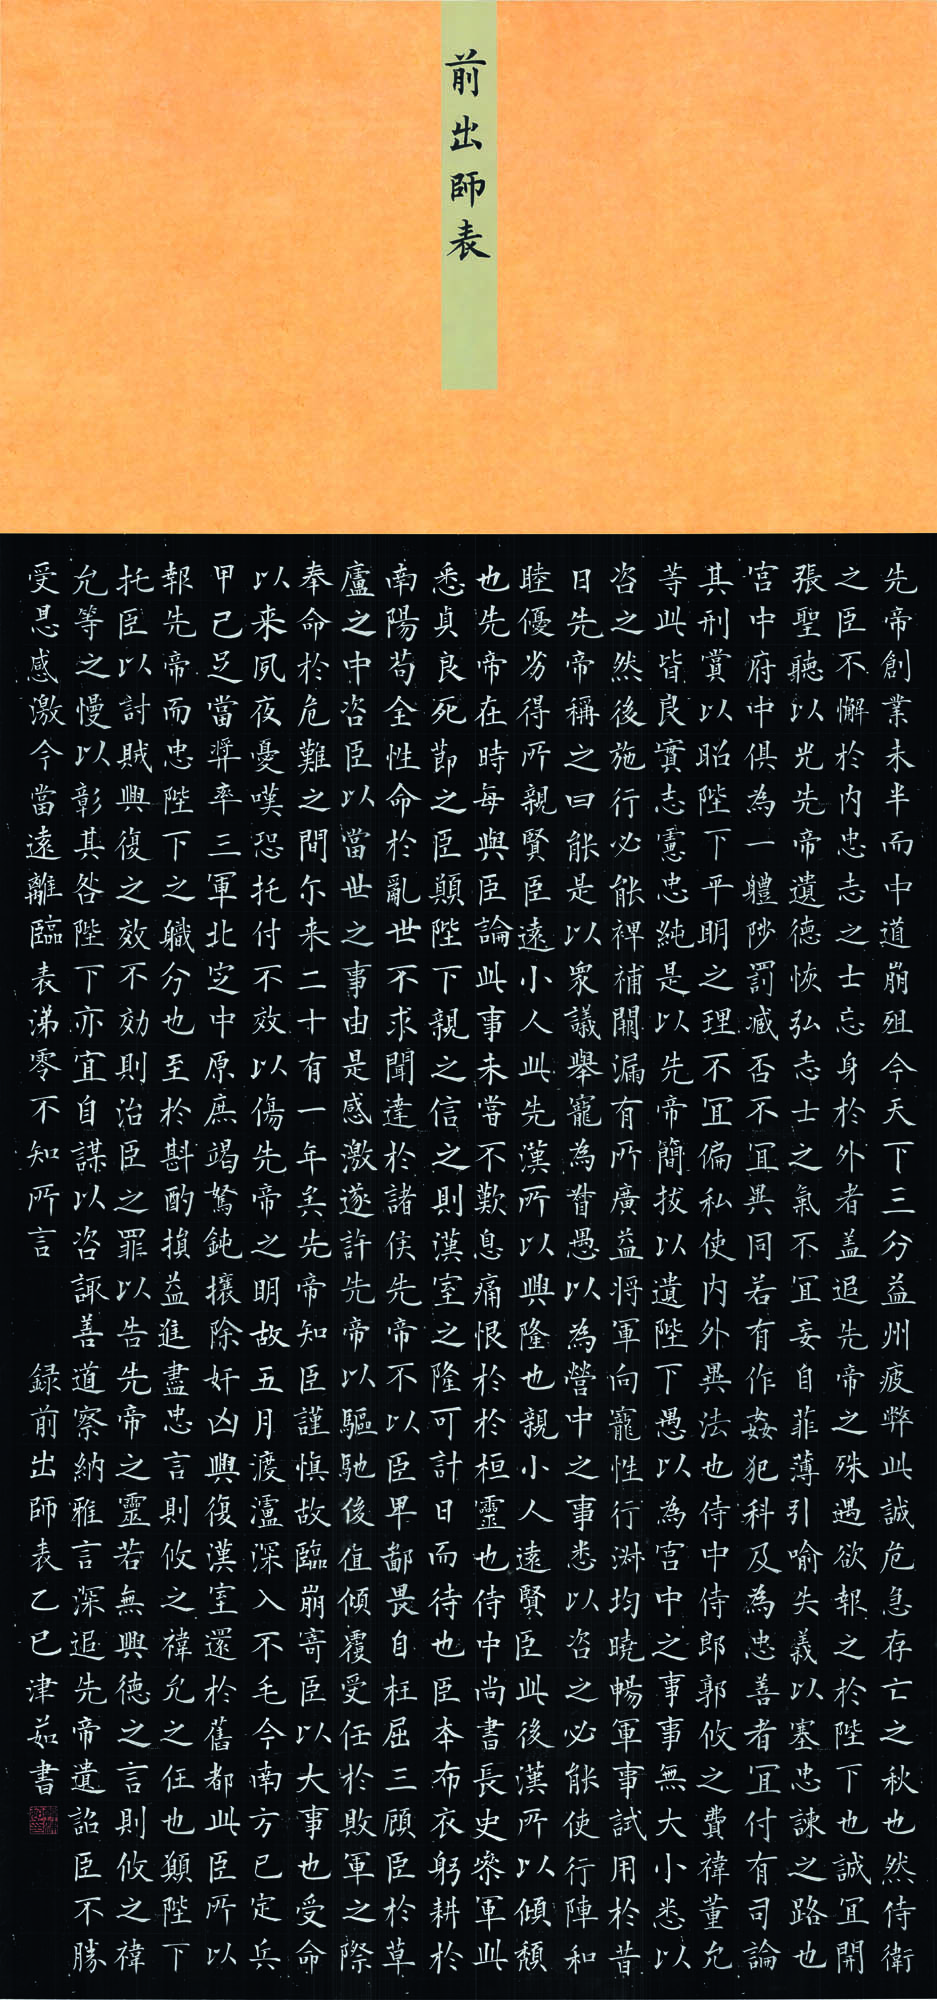 前出師表
先帝創業未半而中道崩殂今天下三分益州疲弊此誠危急存亡之秋也然侍衛
之臣不懈於内忠志之士忘身於外者盖追先帝之殊遇欲報之於陛下也誠宜開
張聖聽以光先帝遺德恢弘志士之氣不宜妄自菲薄引喻失義以塞忠諫之路也
宫中府中俱為一體陟罰臧否不宜異同若有作姦犯科及為忠善者宜付有司論
其刑賞以昭陛下平明之理不宜偏私使内外異法也侍中侍郎郭攸之費禕董允
等此皆良實志慮忠純是以先帝簡拔以遺陛下愚以為宫中之事事無大小悉以
咨之然後施行必能裨補闕漏有所廣益将軍向寵性行淑均曉暢軍事試用於昔
日先帝稱之曰能是以衆議舉寵為督愚以為營中之事悉以咨之必能使行陣和
睦優劣得所親賢臣遠小人此先漢所以興隆也親小人遠賢臣此後漢所以傾頹
也先帝在時每與臣論此事未當不歎息痛恨於於桓靈也侍中尚書長史參軍此
悉貞良死節之臣顛陛下親之信之則漢室之隆可計日而待也臣本布衣躬耕於
南陽苟全性命於亂世不求聞達於諸侯先帝不以臣卑鄙畏自枉屈三顧臣於草
廬之中咨臣以當世之事由是感激遂許先帝以驅馳後值傾覆受任於敗軍之際
奉命於危難之間尔来二十有一年矣先帝知臣謹慎故臨崩寄臣以大事也受命
以来夙夜憂嘆恐托付不效以傷先帝之明故五月渡瀘深入不毛今南方已定兵
甲已足當奨率三軍北定中原庶竭駑鈍攘除奸凶興復漢室還於舊都此臣所以
報先帝而忠陛下之職分也至於斟酌損益進盡忠言則攸之禕允之任也願陛下
托臣以討賊興復之效不効則治臣之罪以告先帝之靈若無興德之言則攸之禕
允等之慢以彰其咎陛下亦宜自謀以咨諏善道察納雅言深追先帝遺詔臣不勝
受恩感激今當遠離臨表涕零不知所言 録前出師表乙巳津茹書